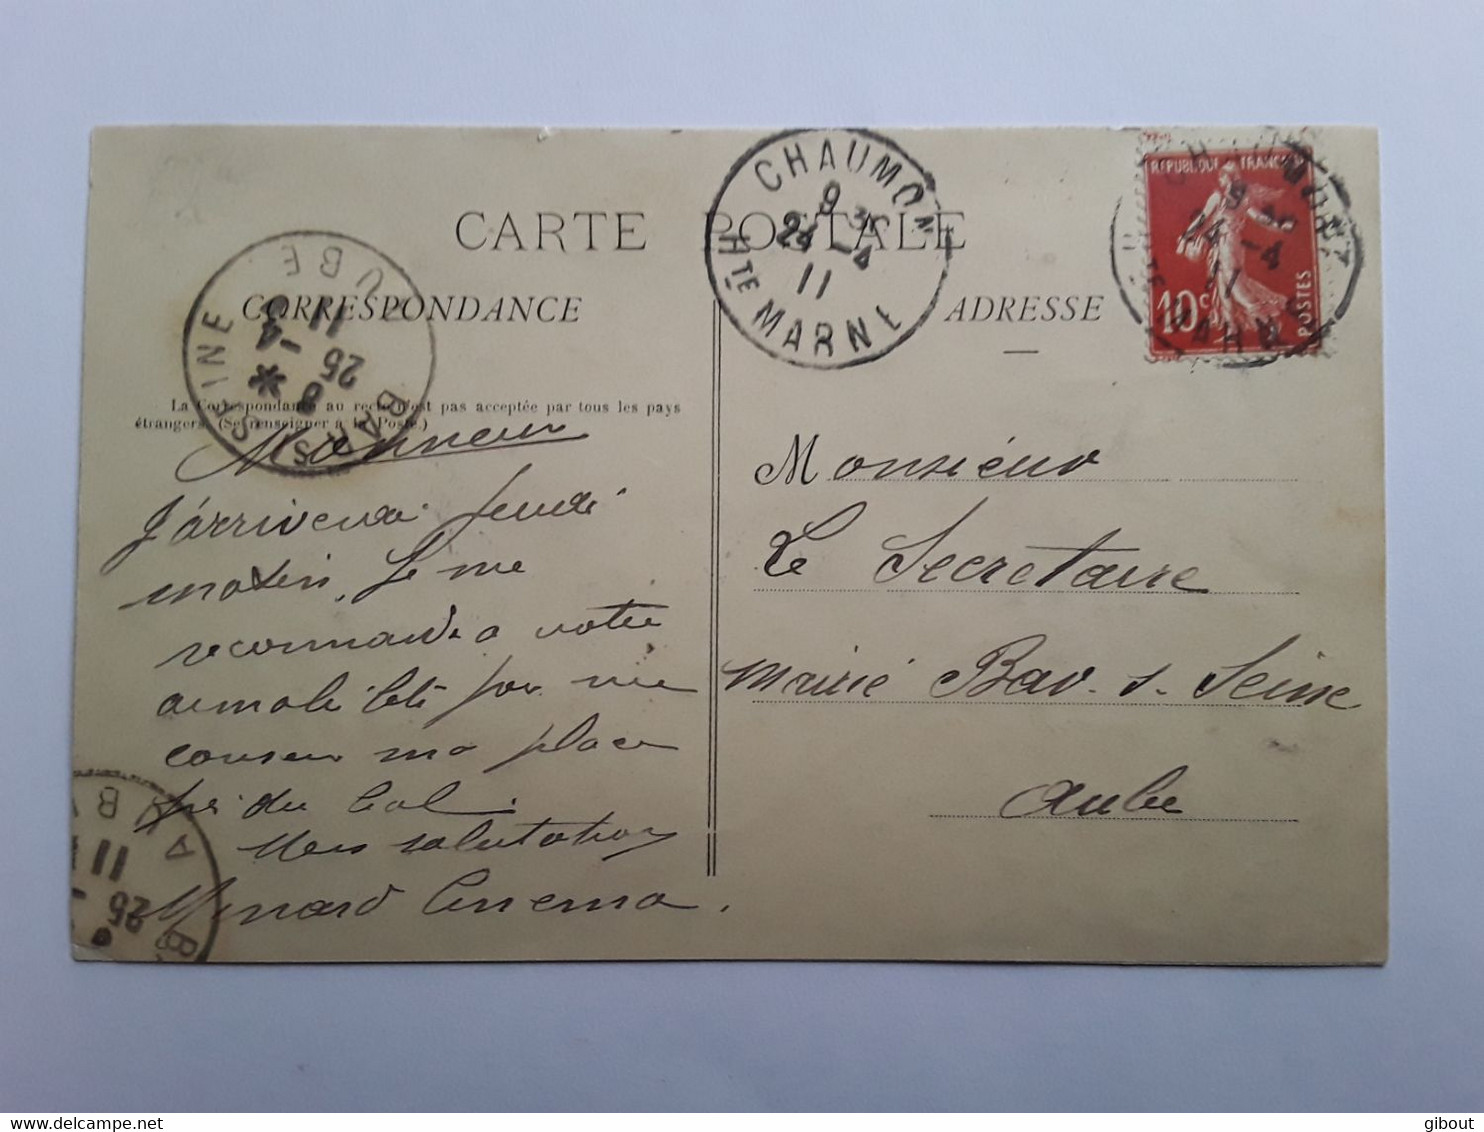 CARTE POSTALE
CORRESPONDANCE
La Correspondance au recto n'est pas acceptée par tous les pays
étrangers. (Se renseigner à la Poste.)
Monsieur
J'arriverai Jeudi
matin. Je me
recommande a votre
aimabilité pour me
conserver ma place
du Bal.
Mes salutations
Menard Cinema.
ADRESSE
Monsieur
Le Secretaire
Mairie Bar. s. Seine
Aube
CHAUMONT
9
24 -4
11
HTE MARNE
REPUBLIQUE FRANÇAISE
10c
POSTES
CHAUMONT
24 -4
11
HTE MARNE
BAR S SEINE
8
25 -4
11
AUBE
BA
25
11
AUB
delcampe.net
gibout